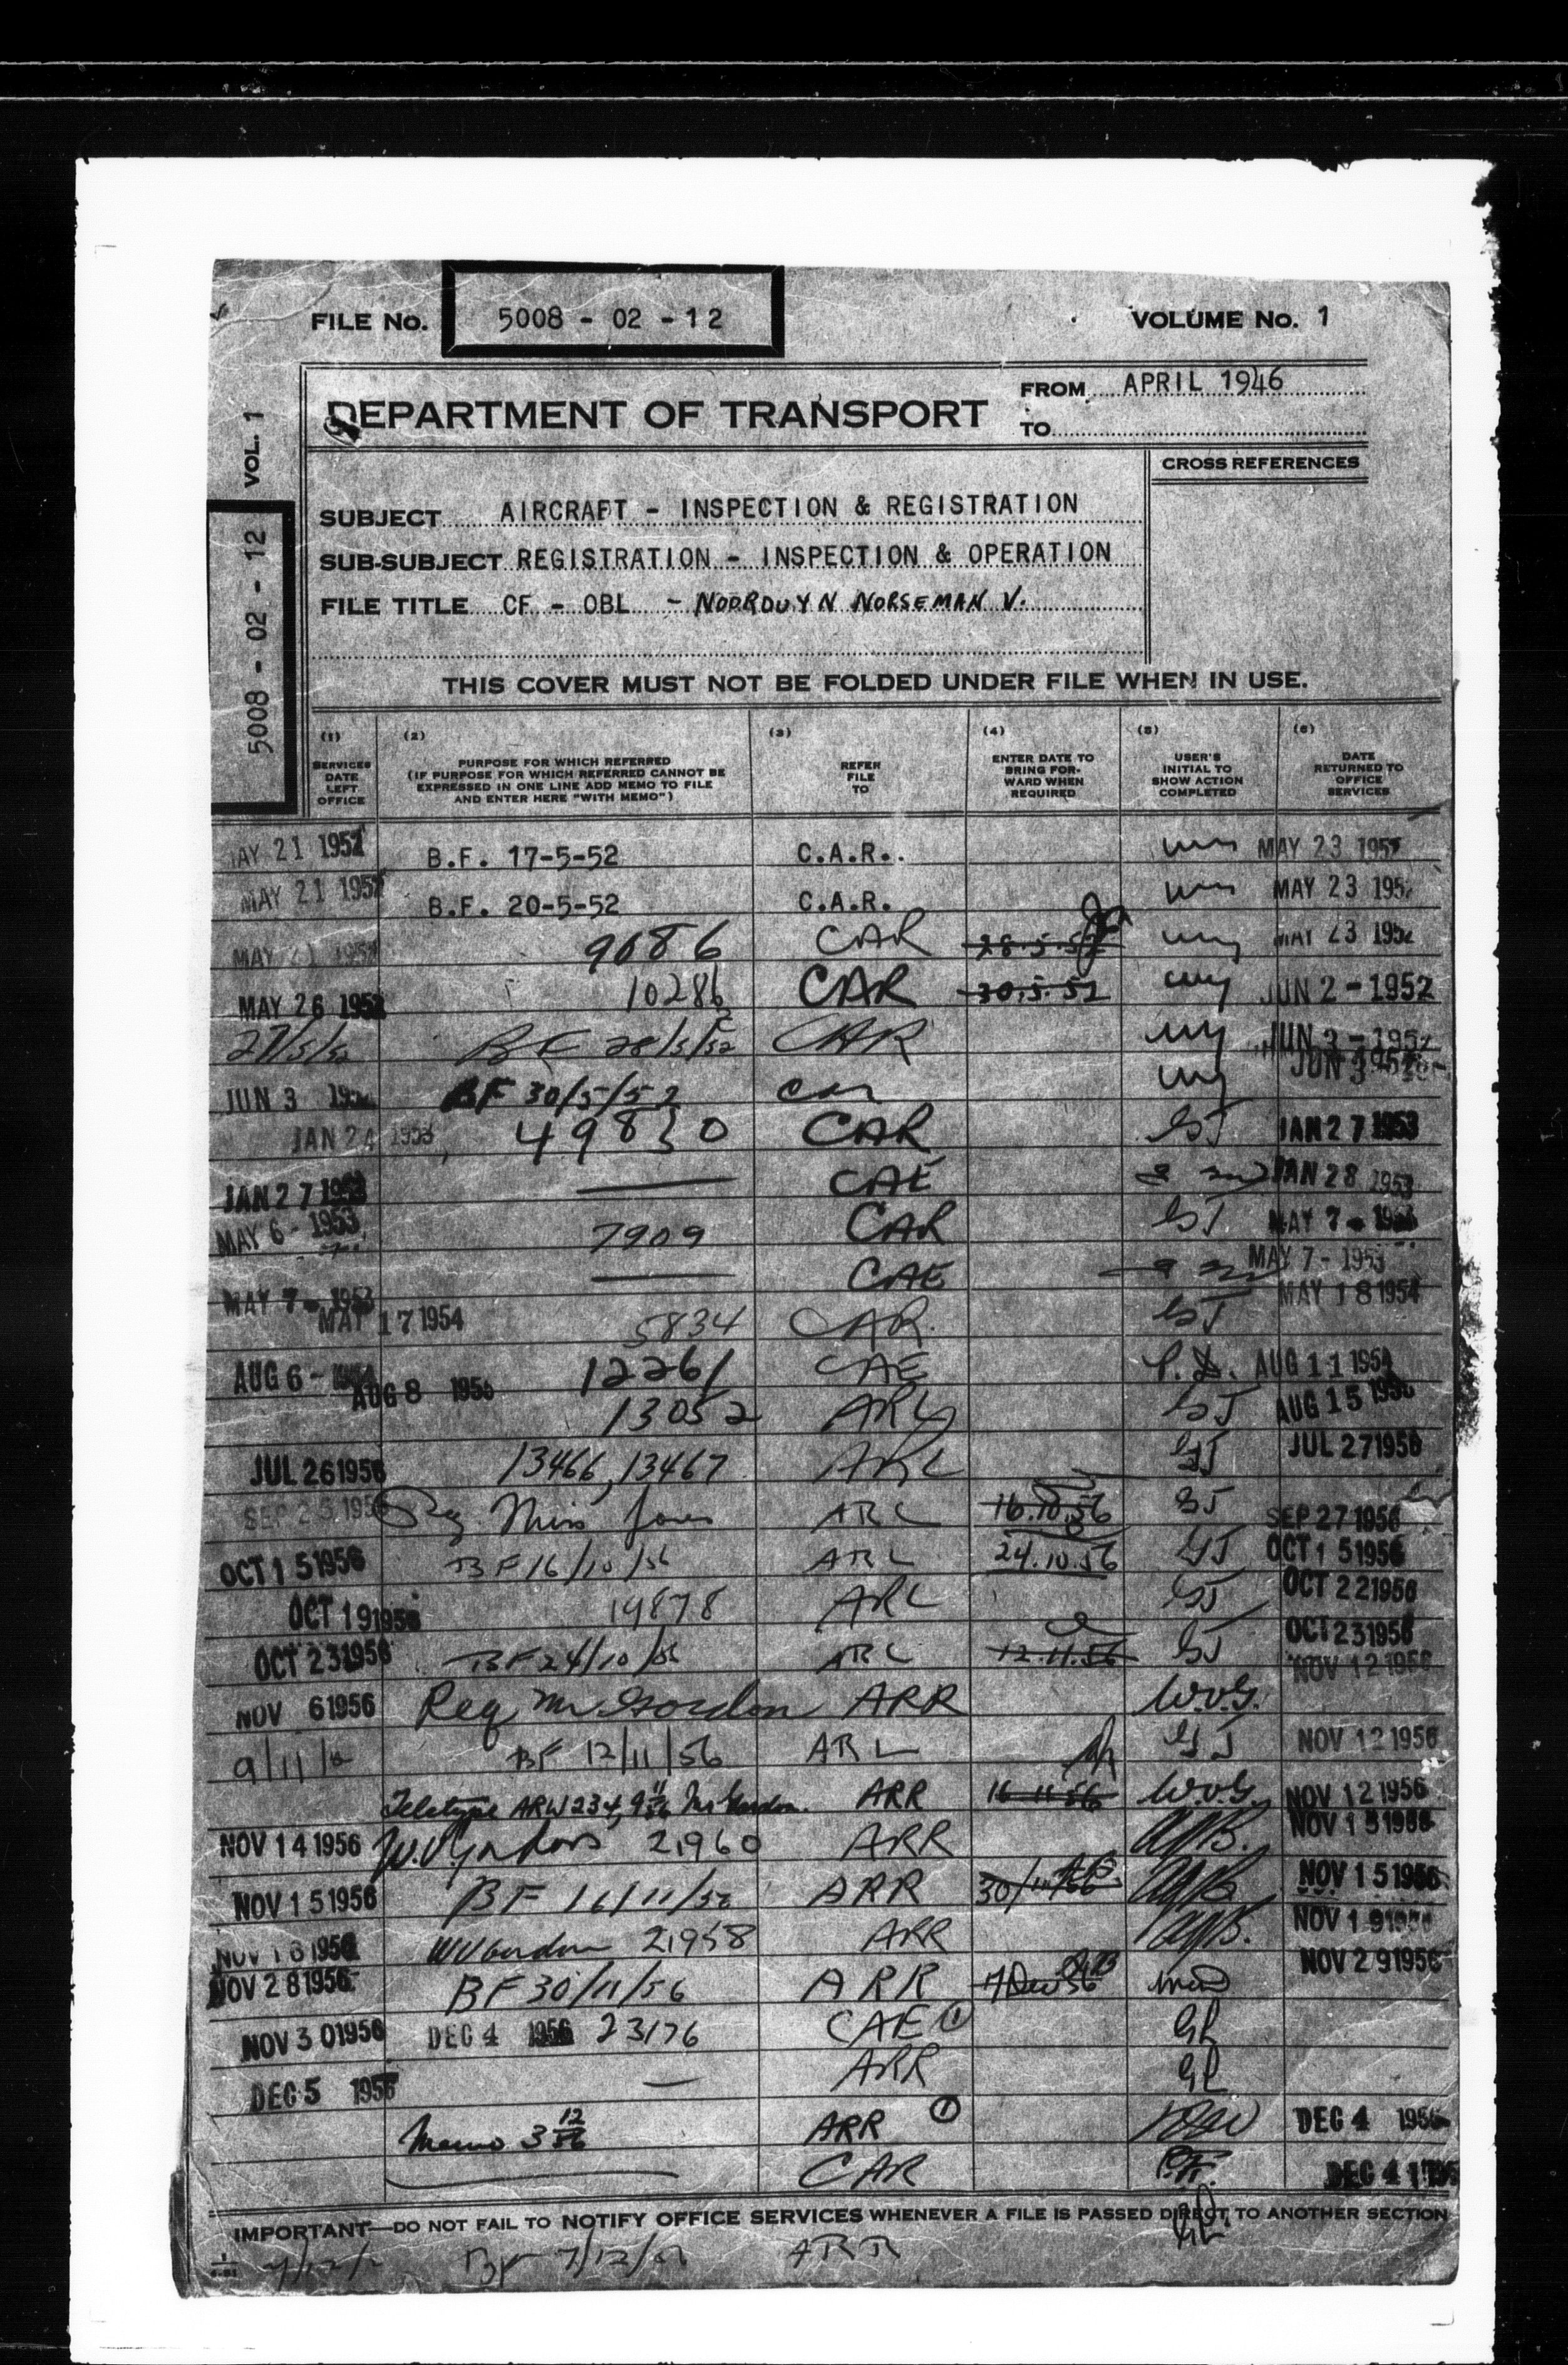 FILE No. 5008 - 02 - 12 VOLUME No. 1
5008 - 02 - 12 VOL. 1
FROM APRIL 1946
DEPARTMENT OF TRANSPORT
TO
CROSS REFERENCES
SUBJECT AIRCRAFT - INSPECTION & REGISTRATION
SUB-SUBJECT REGISTRATION - INSPECTION & OPERATION
FILE TITLE CF - OBL - NOORDUYN NORSEMAN V.
THIS COVER MUST NOT BE FOLDED UNDER FILE WHEN IN USE.
(1) SERVICES DATE LEFT OFFICE
(2) PURPOSE FOR WHICH REFERRED
(IF PURPOSE FOR WHICH REFERRED CANNOT BE
EXPRESSED IN ONE LINE ADD MEMO TO FILE
AND ENTER HERE "WITH MEMO")
(3) REFER FILE TO
(4) ENTER DATE TO BRING FOR- WARD WHEN REQUIRED
(5) USER'S INITIAL TO SHOW ACTION COMPLETED
(6) DATE RETURNED TO OFFICE SERVICES
MAY 21 1952 B.F. 17-5-52 C.A.R.. MAY 23 1952
MAY 21 1952 B.F. 20-5-52 C.A.R. MAY 23 1952
MAY 21 1952 9686 CAR 28.5.52 MAY 23 1952
MAY 26 1952 10286 CAR 30.5.52 JUN 2 - 1952
27/5/52 BF 28/5/52 CAR JUN 3 - 1952
JUN 3 1952 BF 30/5/52 CAR JUN 3 1952
JAN 24 1953 49830 CAR GJ JAN 27 1953
JAN 27 1953 — CAE JAN 28 1953
MAY 6 - 1953 7909 CAR GJ MAY 7 - 1953
MAY 7 - 1953 — CAE MAY 7 - 1953
MAY 17 1954 5834 CAR. GJ MAY 18 1954
AUG 6 - 12261 CAE AUG 11
AUG 8 1956 13052 ARL GJ AUG 15 1956
JUL 26 1956 13466, 13467 ARL GJ JUL 27 1956
SEP 25 195 Req. Miss Jones ARL 16.10.56 GJ SEP 27 1956
OCT 15 1956 BF 16/10/56 ARL 24.10.56 GJ OCT 15 1956
OCT 19 1956 19878 ARL GJ OCT 22 1956
OCT 23 1956 BF 24/10/56 ARL 12.11.56 GJ OCT 23 1956
NOV 6 1956 Req Mr Gordon ARR W.V.G. NOV 12 1956
9/11/56 BF 12/11/56 ARL GJ NOV 12 1956
Teletype ARW 234, 9 11/56 Mr Gordon. ARR 16 11 56 W.V.G. NOV 12 1956
NOV 14 1956 21960 ARR NOV 15 1956
NOV 15 1956 BF 16/11/56 ARR 30/11/56 NOV 15 1956
NOV 16 1956 WV Gordon 21958 ARR NOV 19 1956
NOV 28 1956 BF 30/11/56 ARR 7 Dec 56 NOV 29 1956
NOV 30 1956 DEC 4 1956 23176 CAE 1
DEC 5 1956 — ARR
Memo 3 12/56 ARR 1 DEC 4 1956
CAR DEC 4 1956
IMPORTANT—DO NOT FAIL TO NOTIFY OFFICE SERVICES WHENEVER A FILE IS PASSED DIRECT TO ANOTHER SECTION
BF 7/12/56 ARR